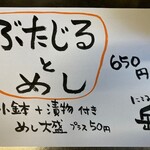 ぶたじる
と
めし
650
円
小鉢+漬物付き
めし大盛 プラス50円